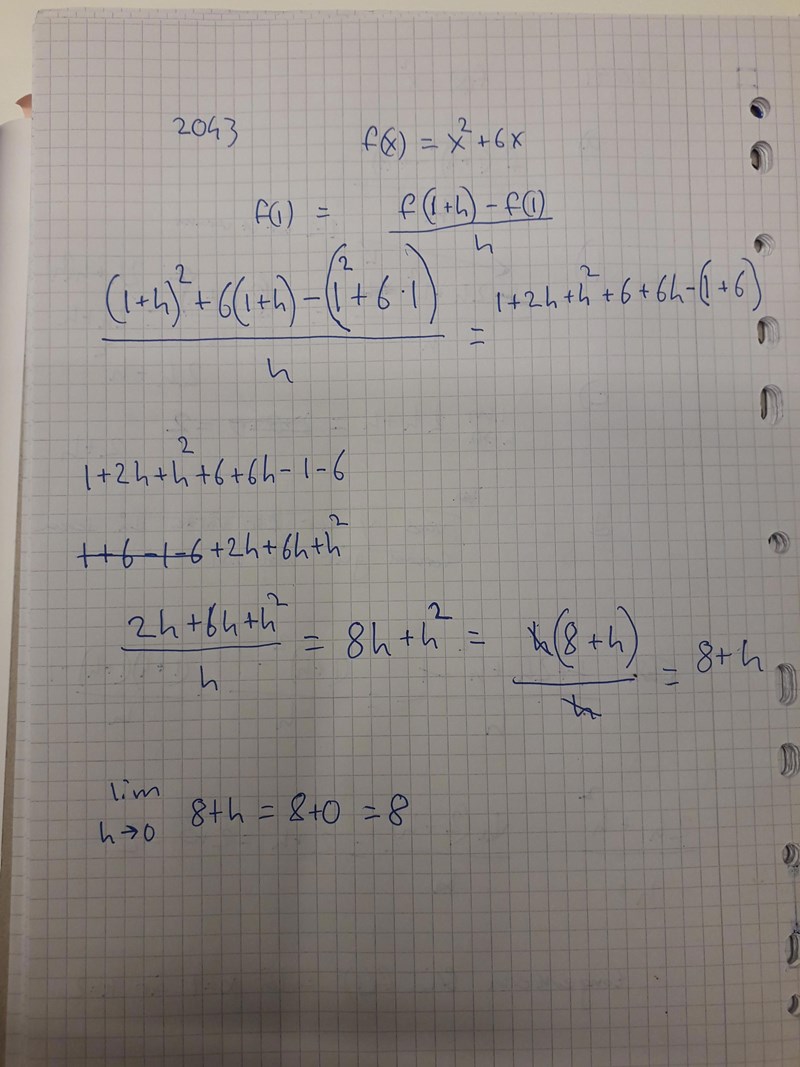 2043 f(x) = x² + 6x
f(1) = f(1+h) - f(1) / h
(1+h)² + 6(1+h) - (1² + 6·1) / h = 1+2h+h²+6+6h-(1+6)
1+2h+h²+6+6h-1-6
1+6-1-6+2h+6h+h²
2h+6h+h² / h = 8h+h² = h(8+h) / h = 8+h
lim h→0 8+h = 8+0 = 8